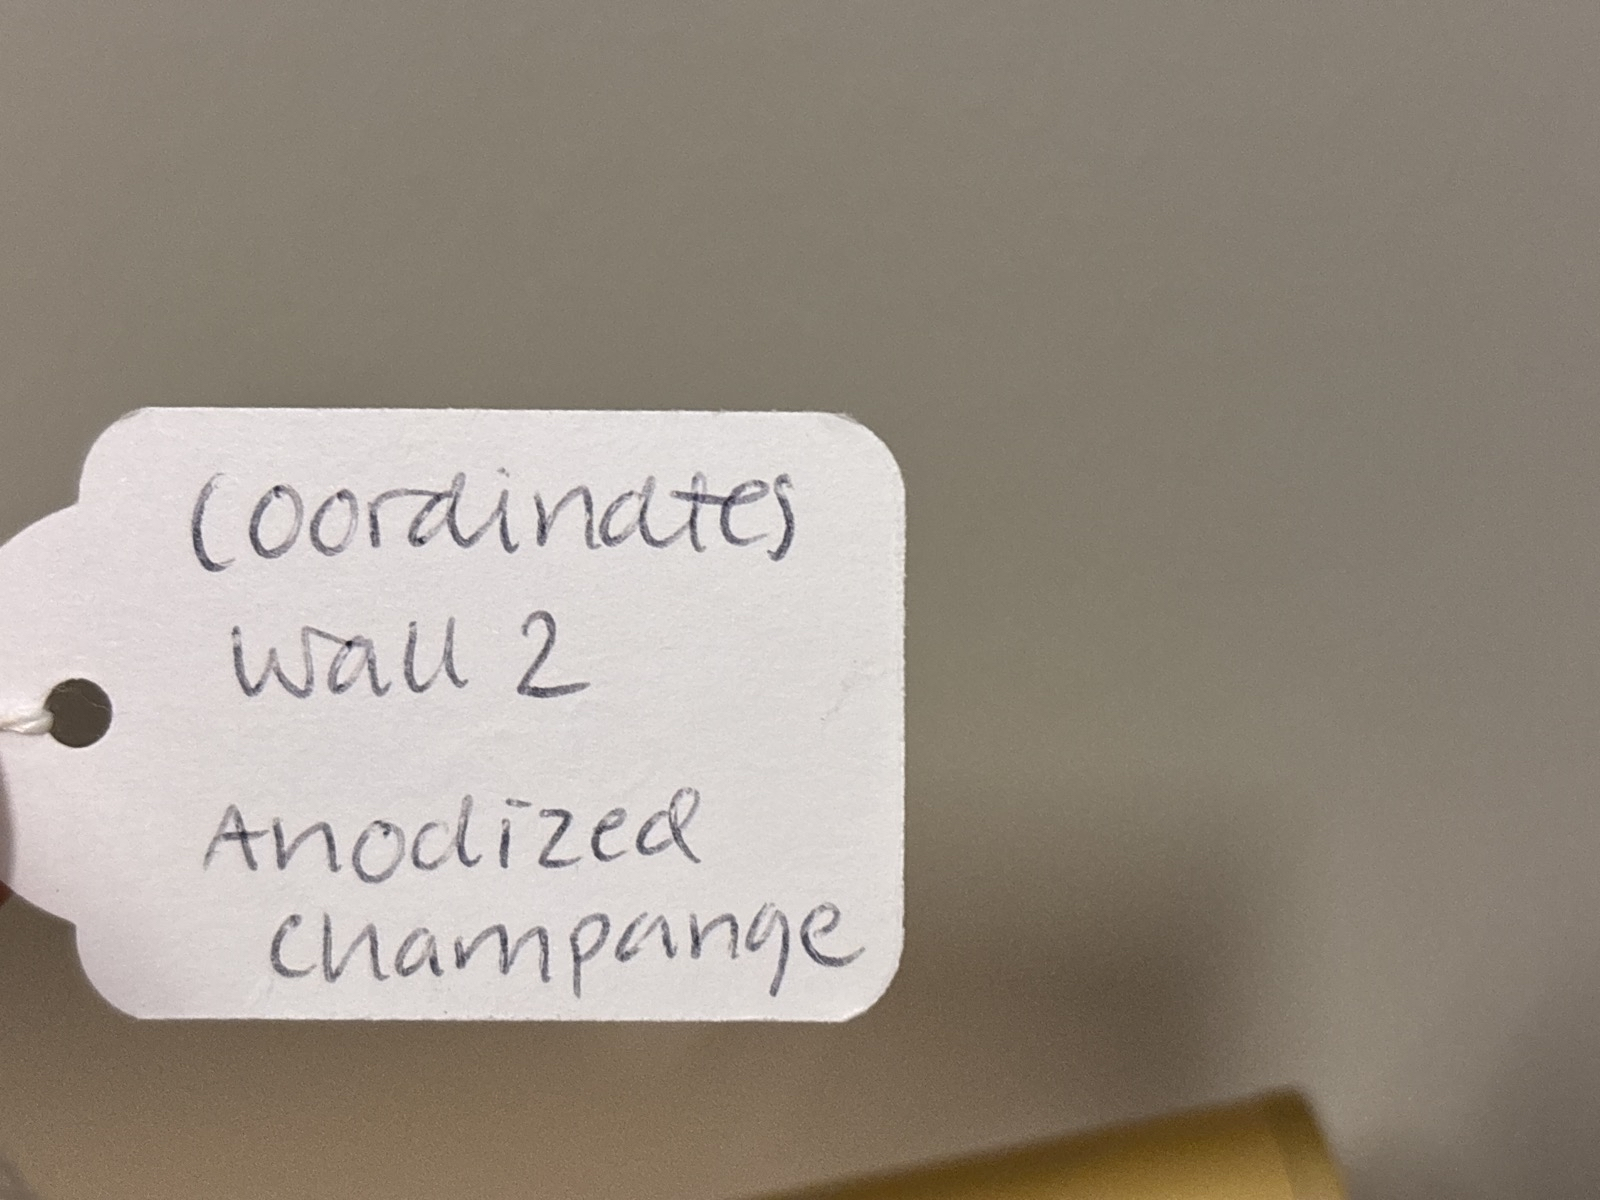 Coordinates
Wall 2
Anodized
Champange